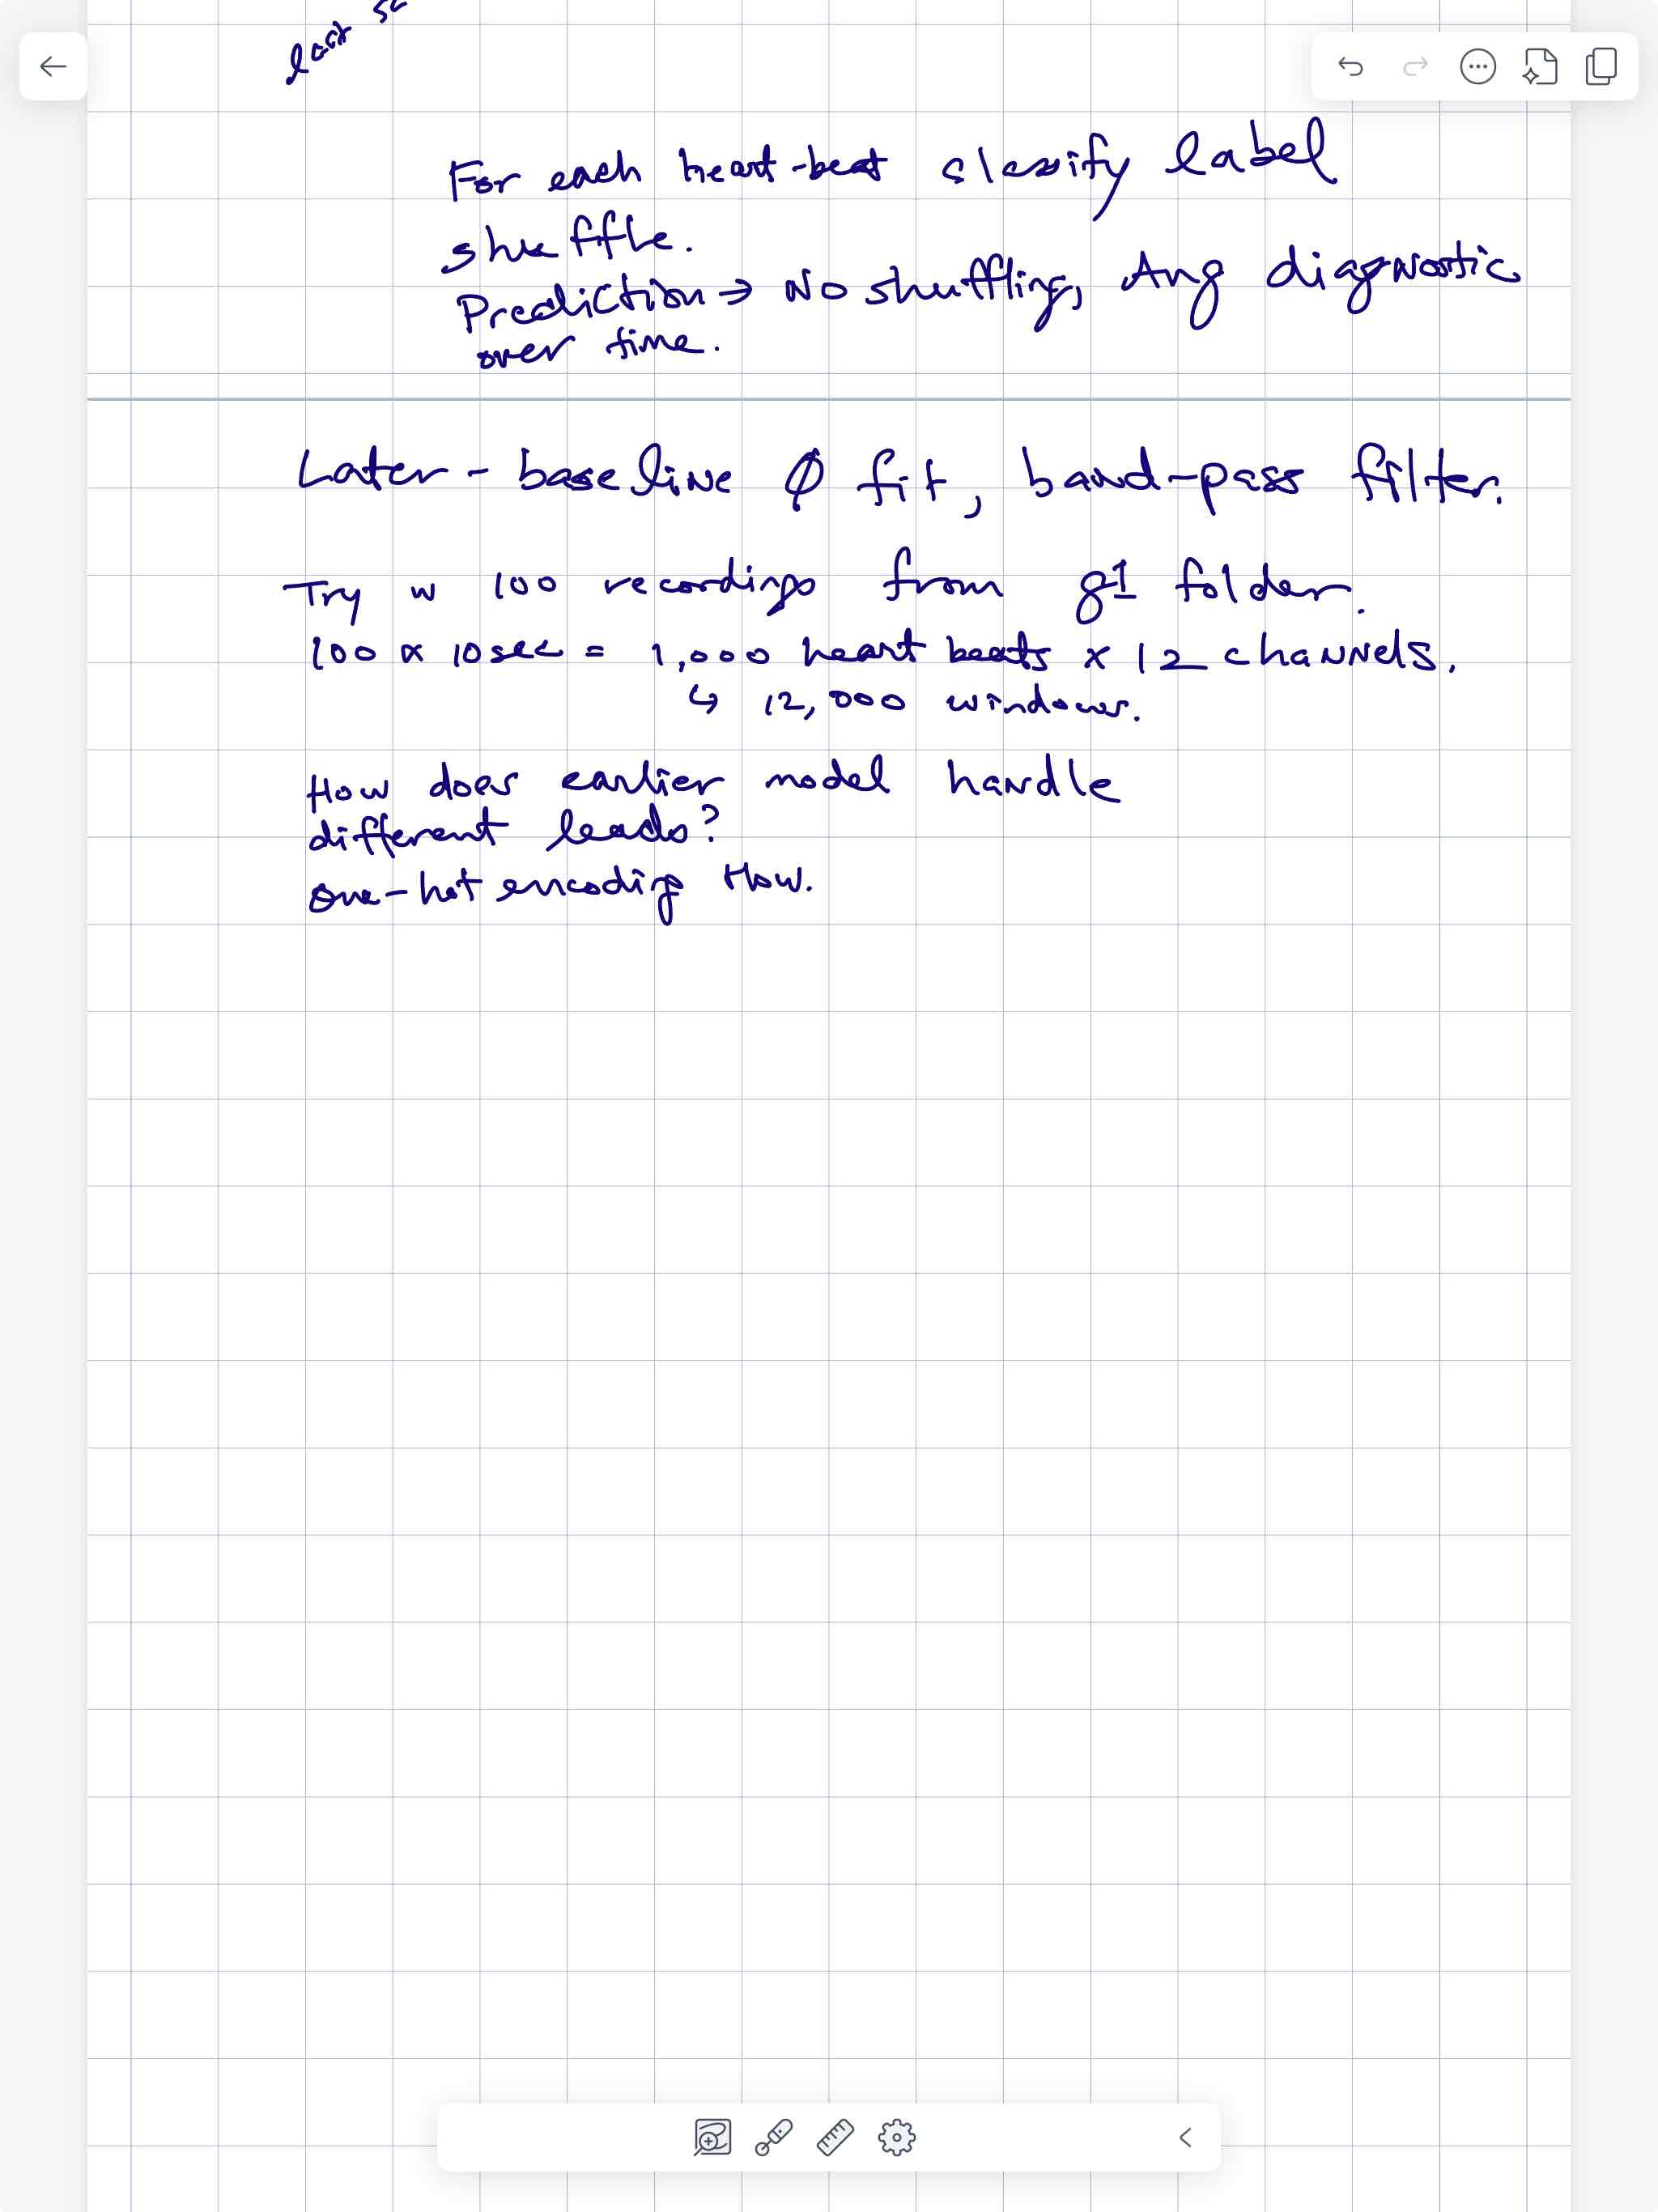 For each heart-beat classify label
shuffle.
Prediction → No shuffling, Avg diagnostic
over time.
Later - baseline Ø fit, band-pass filter.
Try w 100 recordings from g1 folder.
100 x 10sec = 1,000 heart beats x 12 channels.
↳ 12,000 windows.
How does earlier model handle
different leads?
one-hot encoding How.